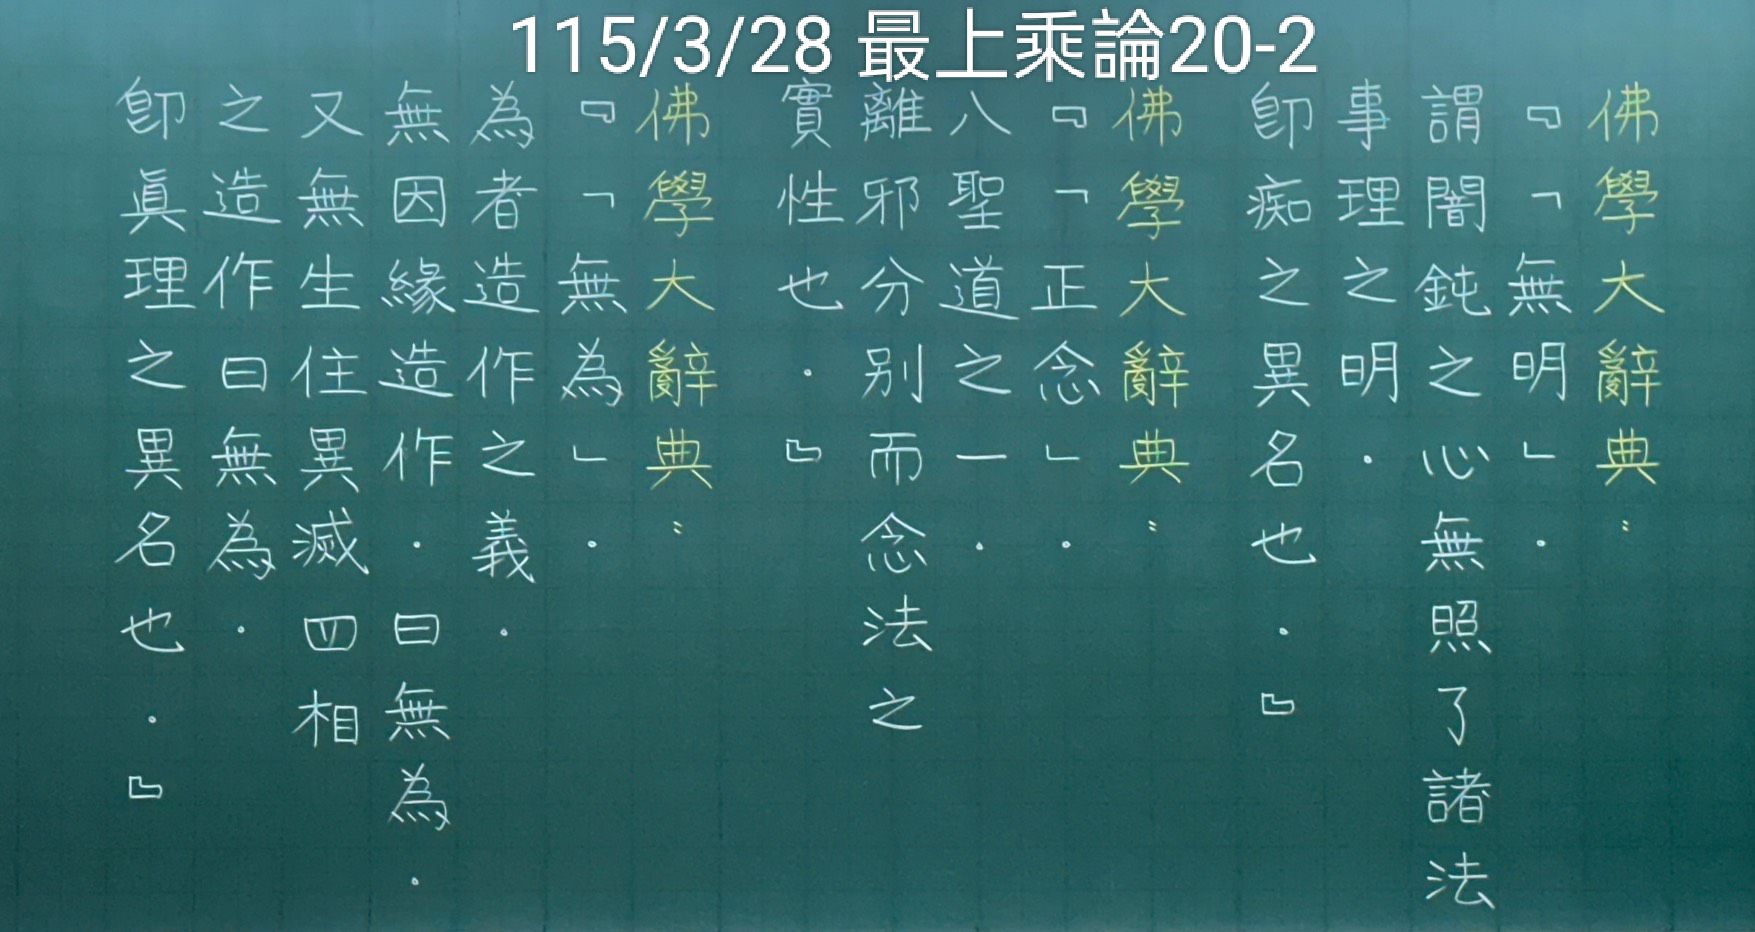 115/3/28 最上乘論20-2
佛學大辭典：
『「無明」．
謂闇鈍之心無照了諸法
事理之明．
卽痴之異名也．』
佛學大辭典：
『「正念」．
八聖道之一．
離邪分別而念法之
實性也．』
佛學大辭典：
『「無為」．
為者造作之義．
無因緣造作．曰無為．
又無生住異滅四相
之造作曰無為．
卽眞理之異名也．』